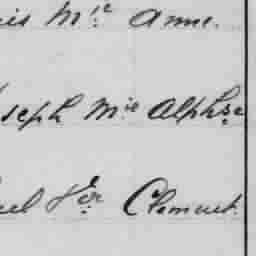 is Mie Anne.
seph Mie Alphse
el Fer Clement.